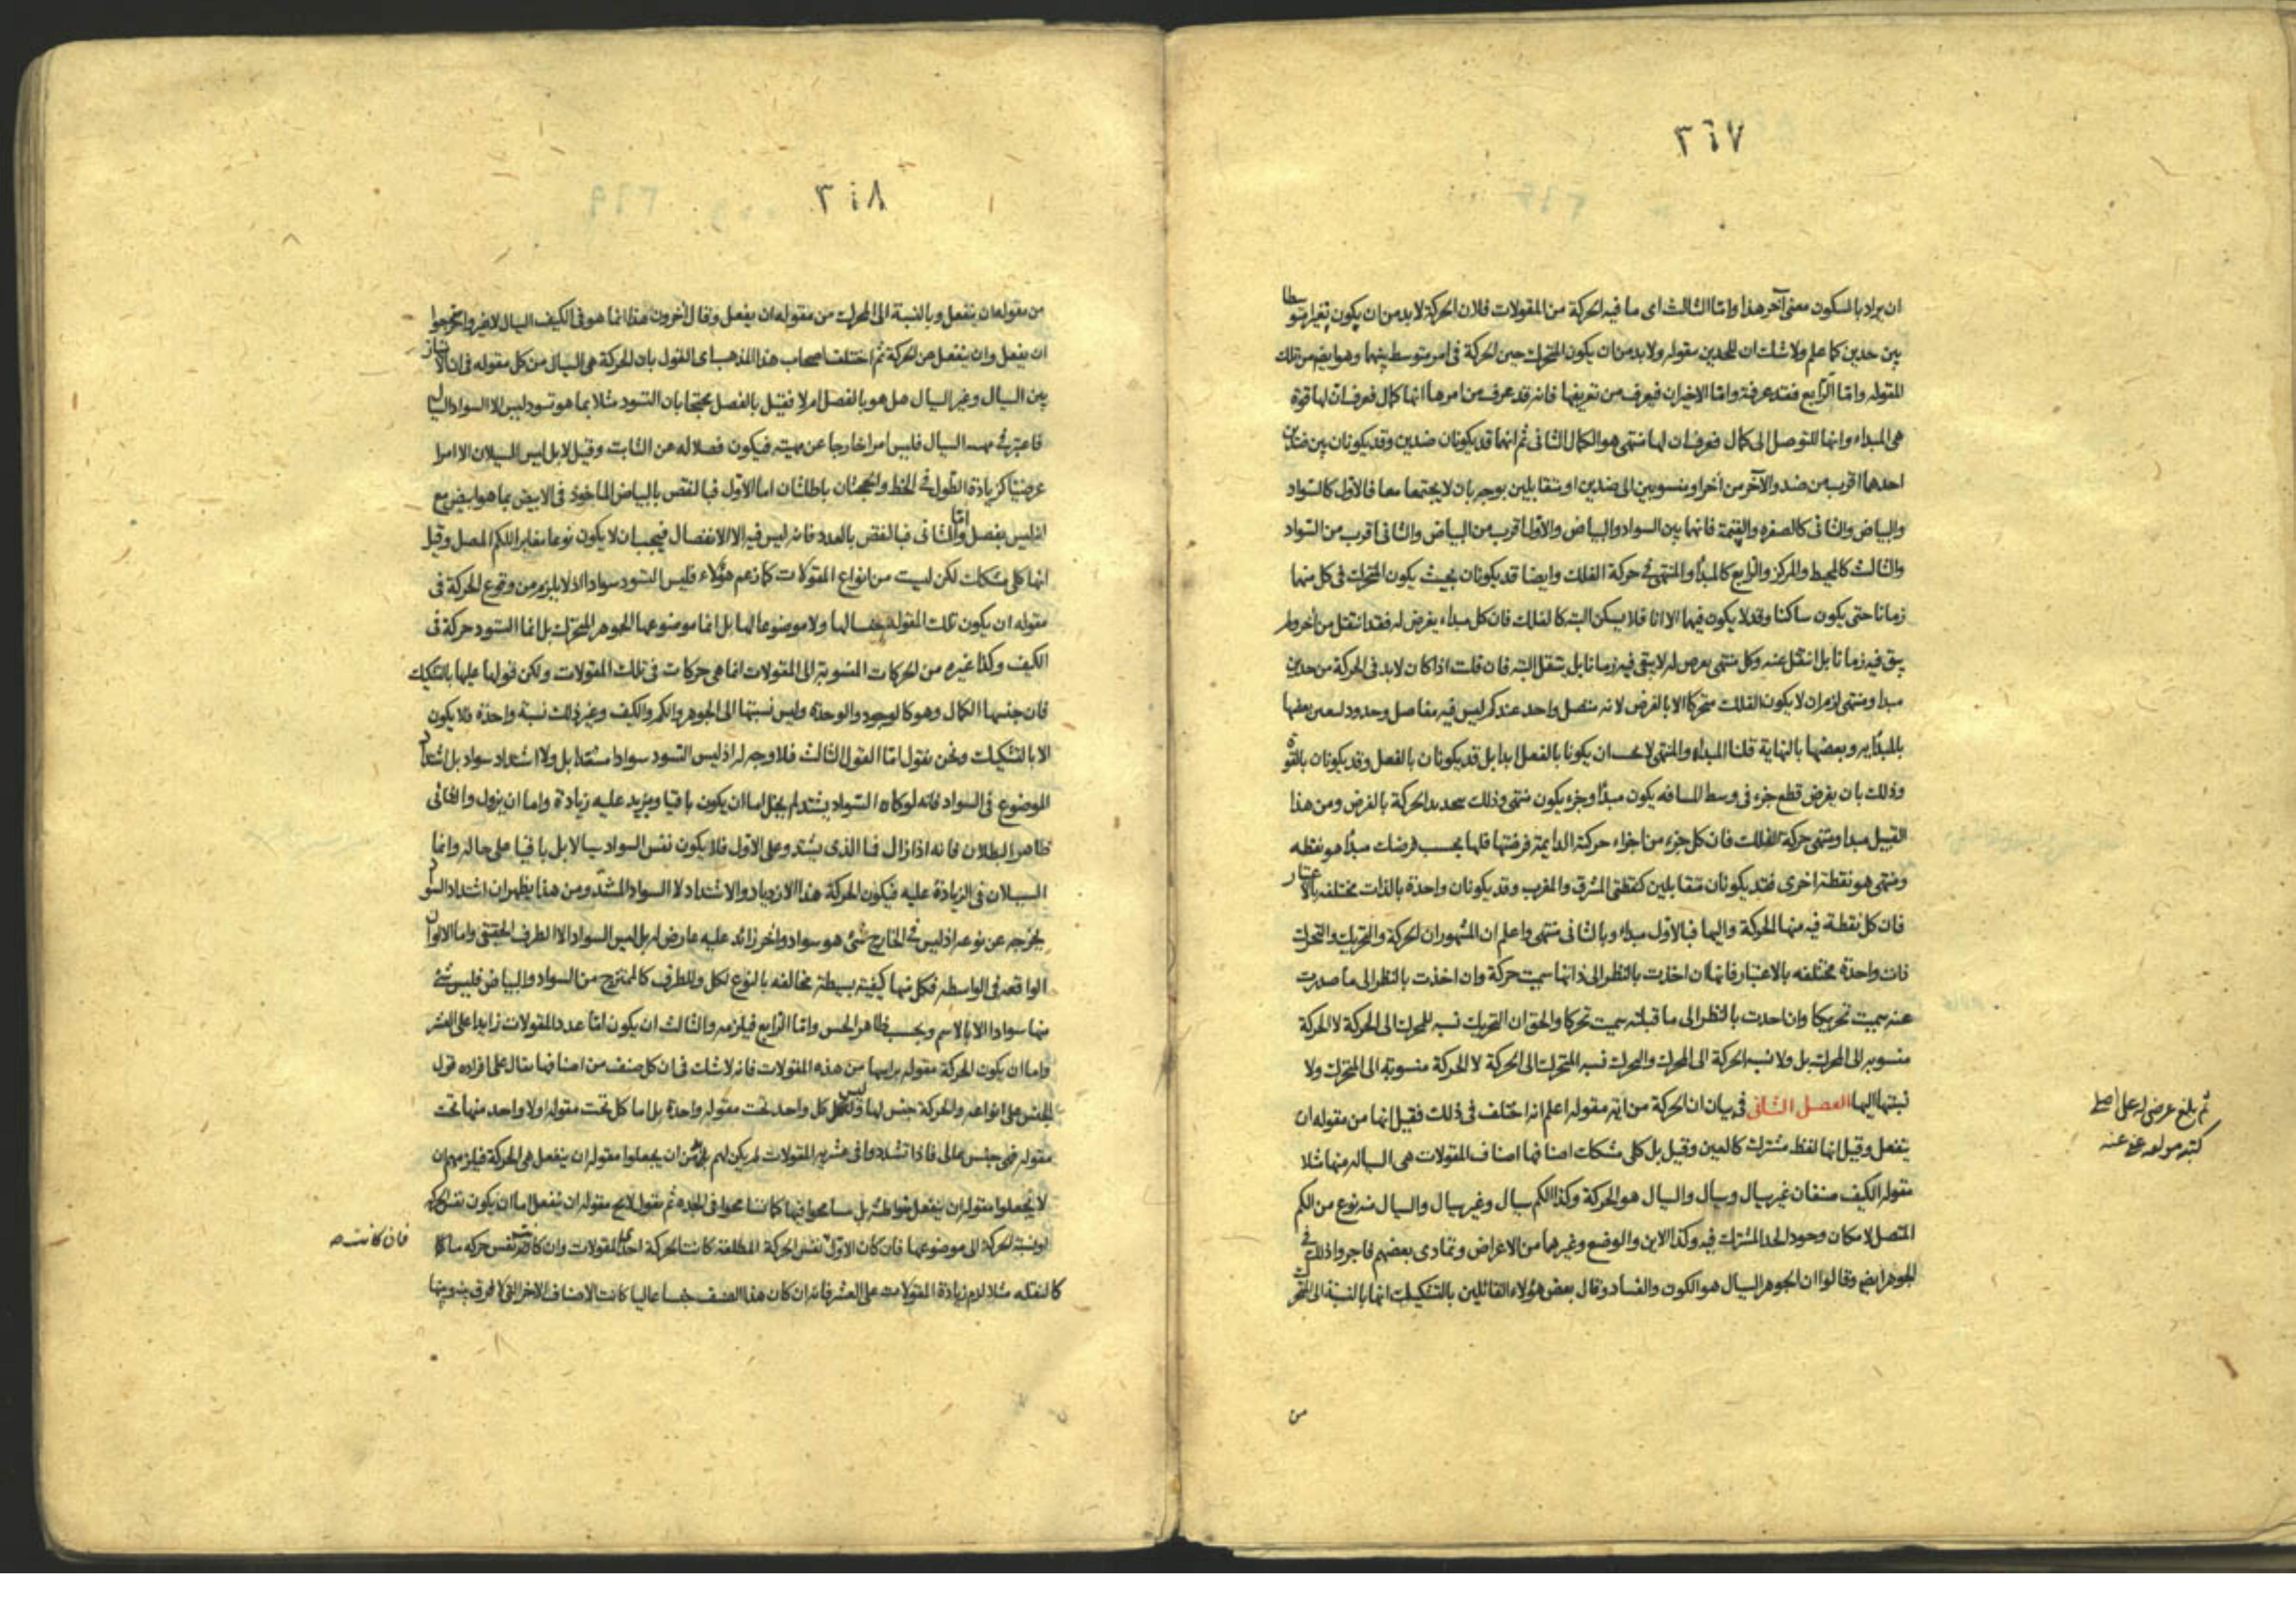 ٣١٧
ان يراد بالسكون معنى آخر هذا واما الثالث اى ما فيه الحركة من المقولات فلان الحركة لابد من ان يكون تغيرا متوسطا
بين حدين كما علم ولا شك ان للحدين مقوله ولابد من ان يكون المتحرك حين الحركة فى امر متوسط بينهما وهو ايضا من تلك
المقوله واما الرابع فقد عرفته واما الاخيران فيعرف من تعريفها فانه قد عرف من امرها انها كمال فعرف ان لها قوة
هى المبداء وانها للتوصل الى كمال فعرف ان لها منتهى هو الكمال الثانى ثم انهما قد يكونان ضدين وقد يكونان بين ضدين
احدهما اقرب من ضد والآخر من آخر او منسوبين الى ضدين او متقابلين بوجه بان لا يجتمعا معا فالاول كالسواد
والبياض والثانى كالصفره والقتمة فانهما بين السواد والبياض والاول اقرب من البياض والثانى اقرب من السواد
والثالث كالمحيط والمركز والرابع كالمبدأ والمنتهى فى حركة الفلك وايضا قد يكونان بحيث يكون المتحرك فى كل منهما
زمانا حتى يكون ساكنا وقد لا يكون فيهما الا انا فلا يسكن البته كالفلك فان كل مبداء يفرض له فقد انتقل من آخر ولم
يبق فيه زمانا بل انتقل عنه وكل منتهى يعرض له لا يبقى فيه زمانا بل ينتقل البته فان قلت اذا كان لابد فى الحركة من حدين
مبدا ومنتهى لزم ان لا يكون الفلك متحركا الا بالفرض لانه متصل واحد عندكم ليس فيه مفاصل وحدود لسعين بعضها
بالمبدأيه وبعضها بالنهاية قلنا المبداء والمنتهى لا يجب ان يكونا بالفعل ابدا بل قد يكونان بالفعل وقد يكونان بالقوة
وذلك بان يفرض قطع جزء فى وسط المسافه يكون مبدأ وجزء يكون منتهى وذلك بتحديد الحركة بالفرض ومن هذا
القبيل مبدا ومنتهى حركة الفلك فان كل جزء من اجزاء حركة الدايمة فرضتها فلها بحسب فرضك مبدأ هو نقطه
ومنتهى هو نقطة اخرى فقد يكونان متقابلين كنقطتى المشرق والمغرب وقد يكونان واحدة بالذات مختلفه بالاعتبار
فان كل نقطة فيه منها الحركة واليها فبالاول مبداء وبالثانى منتهى واعلم ان المشهور ان الحركة والتحريك والتحرك
ذات واحدة مختلفه بالاعتبار فانها ان اخذت بالنظر الى ذاتها سميت حركة وان اخذت بالنظر الى ما صدرت
عنه سميت تحريكا وان اخذت بالنظر الى ما قبلته سميت تحركا والحق ان التحريك نسبه للمحرك الى الحركة لا الحركة
منسوبه الى المحرك بل ولا نسبه الحركة الى المحرك والتحرك نسبه المتحرك الى الحركة لا الحركة منسوبة الى المتحرك ولا
نسبتها اليها الفصل الثانى فى بيان ان الحركة من اية مقوله اعلم انه اختلف فى ذلك فقيل انها من مقوله ان
ينفعل وقيل انها لفظ مشترك كالعين وقيل بل كلى مشكك اصنافها اصناف المقولات هى السياله منها مثلا
مقوله الكيف صنفان غير سيال وسيال والسيال هو الحركة وكذا الكم سيال وغير سيال والسيال منه نوع من الكم
المتصل لامكان وجود الحد المشترك فيه وكذا الاين والوضع وغيرهما من الاعراض وتمادى بعضهم فاجروا ذلك فى
الجوهر ايضا وقالوا ان الجوهر السيال هو الكون والفساد وقال بعض هؤلاء القائلين بالتشكيك انها بالنسبة الى المتحرك
ثم بلغ عرض له على اصلى
كتبه مولفه عفى عنه
من
٣١٨
من مقوله ان ينفعل وبالنسبة الى المحرك من مقوله ان يفعل وقال آخرون هذا انما هو فى الكيف السيال لا غير واخرجوا
ان يفعل وان ينفعل من الحركة ثم اختلف اصحاب هذا المذهب اى القول بان الحركة هى السيال من كل مقوله فى ان الامتياز
بين السيال وغير السيال هل هو بالفصل ام لا فقيل بالفصل محتجا بان التسود مثلا بما هو تسود ليس الا السواد السيال
فاعتبر فى السيال فليس امرا خارجا عن مهيته فيكون فصلا له عن الثابت وقيل لا بل ليس السيلان الا امرا
عرضيا كزيادة الطول فى الخط والحجتان باطلتان اما الاول فبالنقص بالبياض الماخوذ فى الابيض بما هو ابيض مع
انه ليس بفصل واما الثانى فبالنقض بالعدد فانه ليس فيه الا الانفصال فيجب ان لا يكون نوعا مغايرا للكم المتصل وقيل
انها كلى مشكك لكن ليست من انواع المقولات كما زعم هؤلاء فليس التسود سوادا اذ لا يلزم من وقوع الحركة فى
مقوله ان يكون تلك المقوله جنسا لها ولا موضوعا لها بل انما موضوعها الجوهر المتحرك بل انما التسود حركة فى
الكيف وكذا غيره من الحركات المنسوبة الى المقولات انما هى حركات فى تلك المقولات ولكن قولها عليها بالتشكيك
فان جنسها الكمال وهو كالوجود والوحدة وليس نسبتها الى الجوهر والكم والكيف وغير ذلك نسبة واحدة فلا يكون
الا بالتشكيك ونحن نقول اما القول الثالث فلا وجه له اذ ليس التسود سوادا مشتدا بل ولا اشتداد سواد بل اشتداد
الموضوع فى السواد فانه لو كان السواد يشتد لم يخل اما ان يكون باقيا ويزيد عليه زيادة واما ان يزول والثانى
ظاهر البطلان فانه اذا زال فما الذى يشتد وعلى الاول فلا يكون نفس السواد سيالا بل باقيا على حاله وانما
السيلان فى الزيادة عليه فيكون الحركة هذا الازدياد والاشتداد لا السواد المشتد ومن هذا يظهر ان اشتداد السواد
يخرجه عن نوعه اذ ليس فى الخارج شئ هو سواد وآخر زائد عليه عارض له بل ليس السواد الا الطرف الحقيقى واما الالوان
الواقعه فى الواسطه فكل منها كيفية بسيطة مخالفه بالنوع لكل وللطرف كالممتزج من السواد والبياض فليس شئ
منها سوادا الا بالاسم وبحسب ظاهر الحس واما الرابع فيلزمه والثالث ان يكون اما عدد المقولات زايدا على العشر
واما ان يكون الحركة مقوله براسها من هذه المقولات فانه لا شك فى ان كل صنف من اصنافها يقال على افراده قول
الجنس على انواعه والحركة جنس لها وليس كل واحد تحت مقوله واحدة بل اما كل تحت مقوله اولا واحد منها تحت
مقوله فهى جنس عالى فاذا تشددوا فى عشريه المقولات لم يكن لهم بد من ان يجعلوا مقوله ان ينفعل هى الحركة فيلزمهم ان
لا يجعلوا مقوله ان ينفعل متواطئة بل سامحوا فيها كما تسامحوا فى الجده ثم نقول لا يخ مقوله ان ينفعل اما ان يكون نفس الحركة
او نسبة الحركة الى موضوعها فان كان الاول نفس الحركة المطلقة كانت الحركة احدى المقولات وان كانت نفس حركه ما
كالنقله مثلا لزم زيادة المقولات على العشر فانه ان كان هذا الصنف جنسا عاليا كانت الاصناف الاخر التى لا فرق بينه وبينها
فان كانت صح